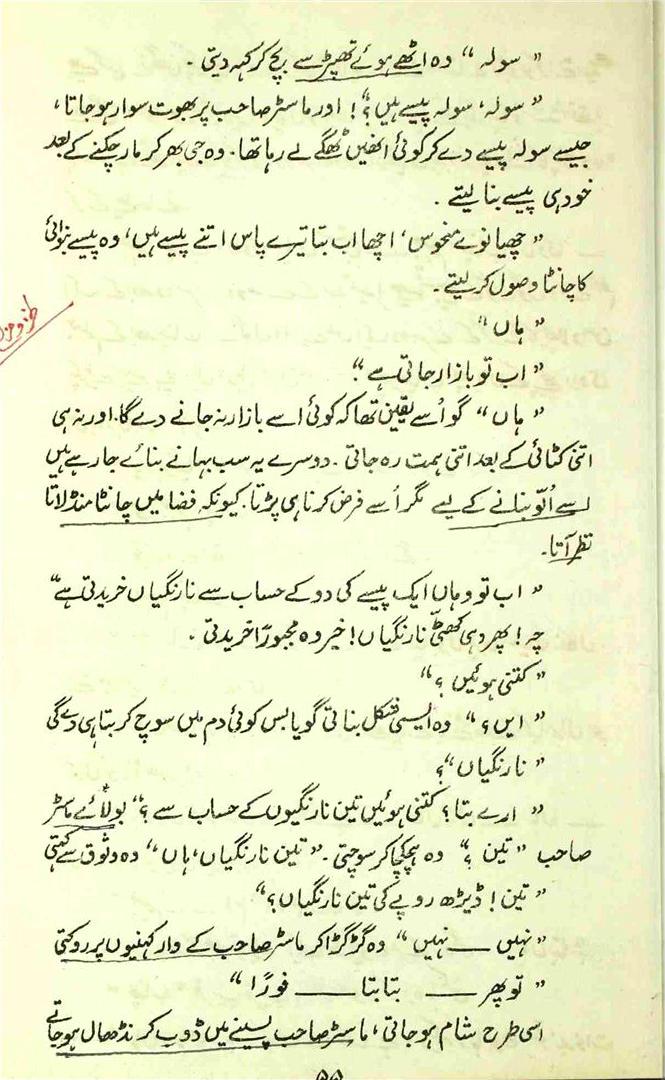 " سولہ " وہ اٹھے ہوئے تھپڑ سے بچ کر کہہ دیتی ۔
" سولہ ، سولہ پیسے ہیں ؟ ! اور ماسٹر صاحب پر بھوت سوار ہو جاتا ،
جیسے سولہ پیسے دے کر کوئی انھیں ٹھگے لے رہا تھا ۔ وہ جی بھر کر مار چکنے کے بعد
خود ہی پیسے بنا لیتے ۔
" چھیانوے منحوس ، اچھا اب بتا تیرے پاس اتنے پیسے ہیں ، وہ پیسے بنوائی
کا چانٹا وصول کر لیتے ۔
" ہاں "
" اب تو بازار جاتی ہے "
" ہاں " گو اُسے یقین تھا کہ کوئی اسے بازار نہ جانے دے گا ۔ اور نہ ہی
اتنی کٹائی کے بعد اتنی ہمت رہ جاتی ۔ دوسرے یہ سب بہانے بنائے جا رہے ہیں
اسے اُلّو بنانے کے لیے مگر اُسے فرض کرنا ہی پڑتا ۔ کیونکہ فضا میں چانٹا منڈلاتا
نظر آتا ۔
" اب تو وہاں ایک پیسے کی دو کے حساب سے نارنگیاں خریدتی ہے "
چہ ! پھر وہی کھٹی نارنگیاں ! خیر وہ مجبوراً خریدتی ۔
" کتنی ہوئیں ؟ "
" ایں ؟ " وہ ایسی شکل بناتی گویا بس کوئی دم میں سوچ کر بتا ہی دے گی
" نارنگیاں " ؟
" ارے بتا ؟ کتنی ہوئیں تین نارنگیوں کے حساب سے ؟ " بولائے ماسٹر
صاحب " تین ؟ " وہ ہچکچا کر سوچتی ۔ " تین نارنگیاں ، ہاں ، " وہ وثوق سے کہتی
" تین ! ڈیڑھ روپے کی تین نارنگیاں ؟ "
" نہیں ـــ نہیں " وہ گڑگڑا کر ماسٹر صاحب کے وار کہنیوں پر روکتی
" تو پھر ـــ بتا بتا ـــ فوراً "
اسی طرح شام ہو جاتی ، ماسٹر صاحب پسینے میں ڈوب کر نڈھال ہو جاتے
۵۵